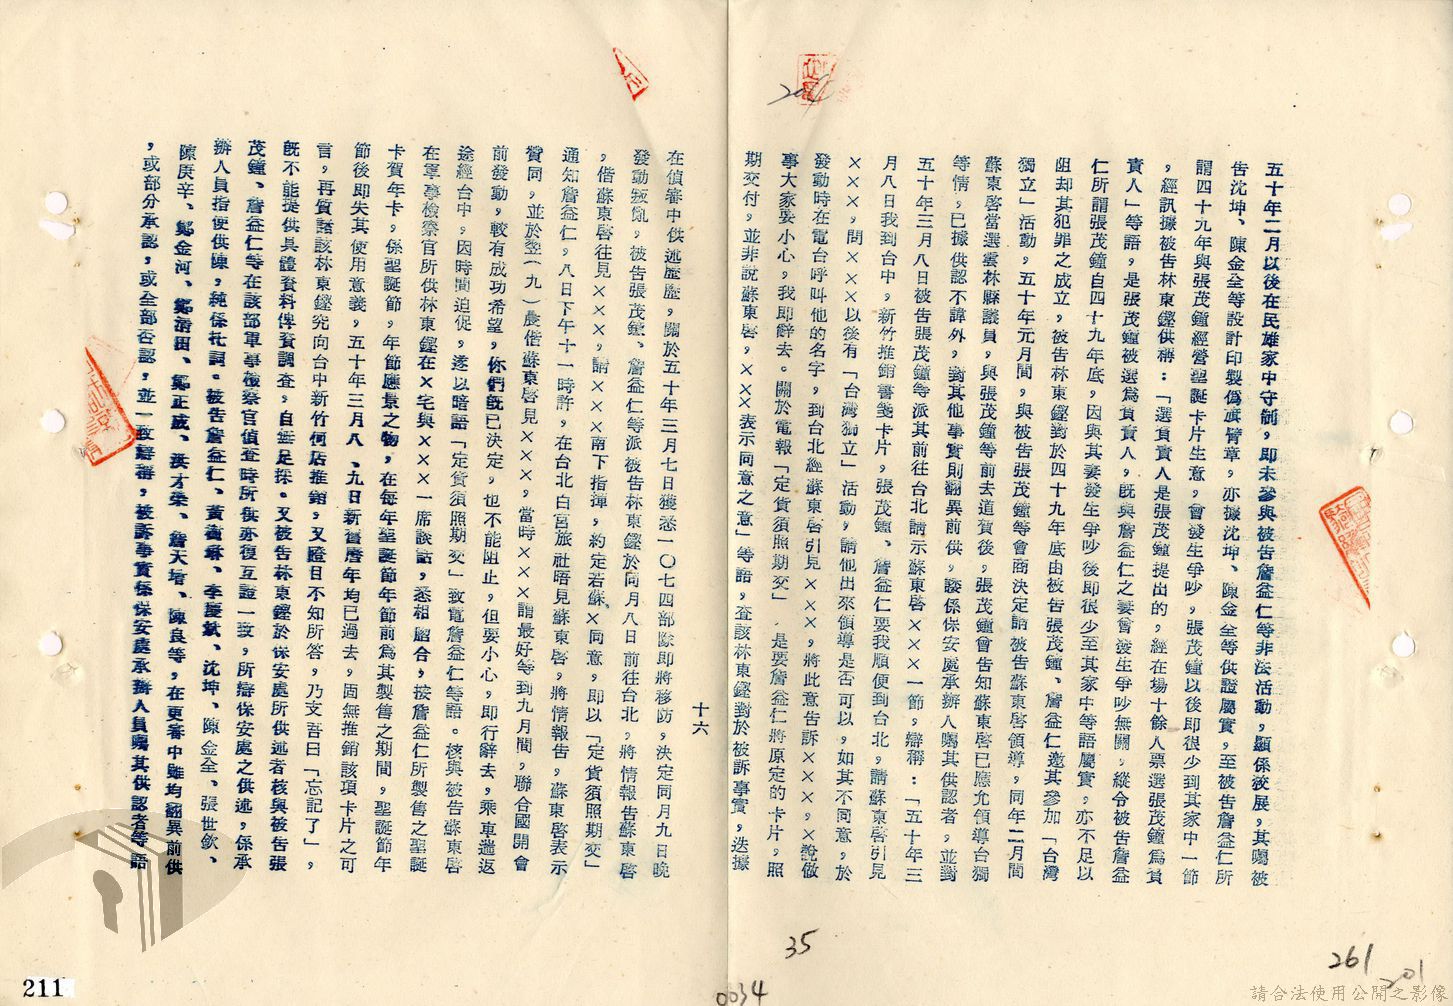 五十年二月以後在民雄家中守制，即未參與被告詹益仁等非法活動，顯係狡展，其囑被
告沈坤、陳金全等設計印製偽旗臂章，亦據沈坤、陳金全等供證屬實，至被告詹益仁所
謂四十九年與張茂鐘經營聖誕卡片生意，會發生爭吵，張茂鐘以後即很少到其家中一節
，經訊據被告林東鏗供稱：「選負責人是張茂鐘提出的，經在場十餘人票選張茂鐘為負
責人」等語，是張茂鐘被選為負責人，既與詹益仁之妻會發生爭吵無關，縱令被告詹益
仁所謂張茂鐘自四十九年底，因與其妻發生爭吵後即很少至其家中等語屬實，亦不足以
阻却其犯罪之成立，被告林東鏗對於四十九年底由被告張茂鐘、詹益仁邀其參加「台灣
獨立」活動，五十年元月間，與被告張茂鐘等會商決定請被告蘇東啓領導，同年二月間
蘇東啓當選雲林縣議員，與張茂鐘等前去道賀後，張茂鐘會告知蘇東啓已應允領導台獨
等情，已據供認不諱外，對其他事實則翻異前供，諉係保安處承辦人囑其供認者，並對
五十年三月八日被告張茂鐘等派其前往台北請示蘇東啓×××一節，辯稱：「五十年三
月八日我到台中，新竹推銷書箋卡片，張茂鐘、詹益仁要我順便到台北，請蘇東啓引見
×××，問××××以後有「台灣獨立」活動，請他出來領導是否可以，如其不同意，於
發動時在電台呼叫他的名字，到台北經蘇東啓引見×××，將此意告訴×××，×說做
事大家要小心，我即辭去。關於電報「定貨須照期交」，是要詹益仁將原定的卡片，照
期交付，並非說蘇東啓，×××表示同意之意」等語，查該林東鏗對於被訴事實，迭據
十六
在偵審中供述歷歷，關於五十年三月七日獲悉一〇七四部隊即將移防，決定同月九日晚
發動叛亂，被告張茂鐘、詹益仁等派被告林東鏗於同月八日前往台北，將情報告蘇東啓
，偕蘇東啓往見×××，請×××南下指揮，約定若蘇、×同意，即以「定貨須照期交」
通知詹益仁，八日下午十一時許，在台北白宮旅社晤見蘇東啓，將情報告，蘇東啓表示
贊同，並於翌（九）晨偕蘇東啓見×××，當時×××謂最好等到九月間，聯合國開會
前發動，較有成功希望，你們既已決定，也不能阻止，但要小心，即行辭去，乘車遄返
途經台中，因時間迫促，遂以暗語「定貨須照期交」致電詹益仁等語。核與被告蘇東啓
在軍事檢察官所供林東鏗在×宅與×××一席談話，悉相脗合，按詹益仁所製售之聖誕
卡賀年卡，係聖誕節，年節應景之物，在每年聖誕節年節前為其製售之期間，聖誕節年
節後即失其使用意義，五十年三月八、九日新舊曆年均已過去，固無推銷該項卡片之可
言，再質諸該林東鏗究向台中新竹何店推銷，又瞪目不知所答，乃支吾曰「忘記了」，
既不能提供具體資料俾資調查，自無足採。又被告林東鏗於保安處所供述者核與被告張
茂鐘、詹益仁等在該部軍事檢察官偵查時所供亦復互證一致，所辯保安處之供述，係承
辦人員指使供陳，純係托詞。被告詹益仁、黃樹琳、李慶斌、沈坤、陳金全、張世欽、
陳庚辛、鄭金河、鄭清田、鄭正成、洪才榮、詹天增、陳良等，在更審中雖均翻異前供
，或部分承認，或全部否認，並一致諉稱，被訴事實係保安處承辦人員囑其供認者等語
35
0034
261
201
211
請合法使用公開之影像